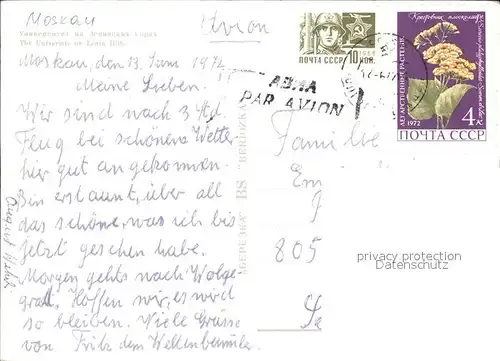 Moskau
Avion
Университет на Ленинских горах
The University on Lenin Hills
Moskau, den 13. Juni 1974
Meine Lieben.
Wir sind nach 3 Std.
Flug bei schönem Wetter
hier gut angekommen.
Bin erstaunt, über all
das schöne, was ich bis
jetzt gesehen habe.
Morgen gehts nach Wolgo
grad. Hoffen wir, es wird
so bleiben. Viele Grüsse
von Fritz dem Wellenbummler
August
ПОЧТА СССР 10 КОП.
1966
АВИА
PAR AVION
ЛЕКАРСТВЕННЫЕ РАСТЕНИЯ
Крестовник плосколистный
1972
4к
ПОЧТА СССР
Familie
Em
805
"БЕРЕЗКА" BS "BERIOZKA"
privacy protection
Datenschutz